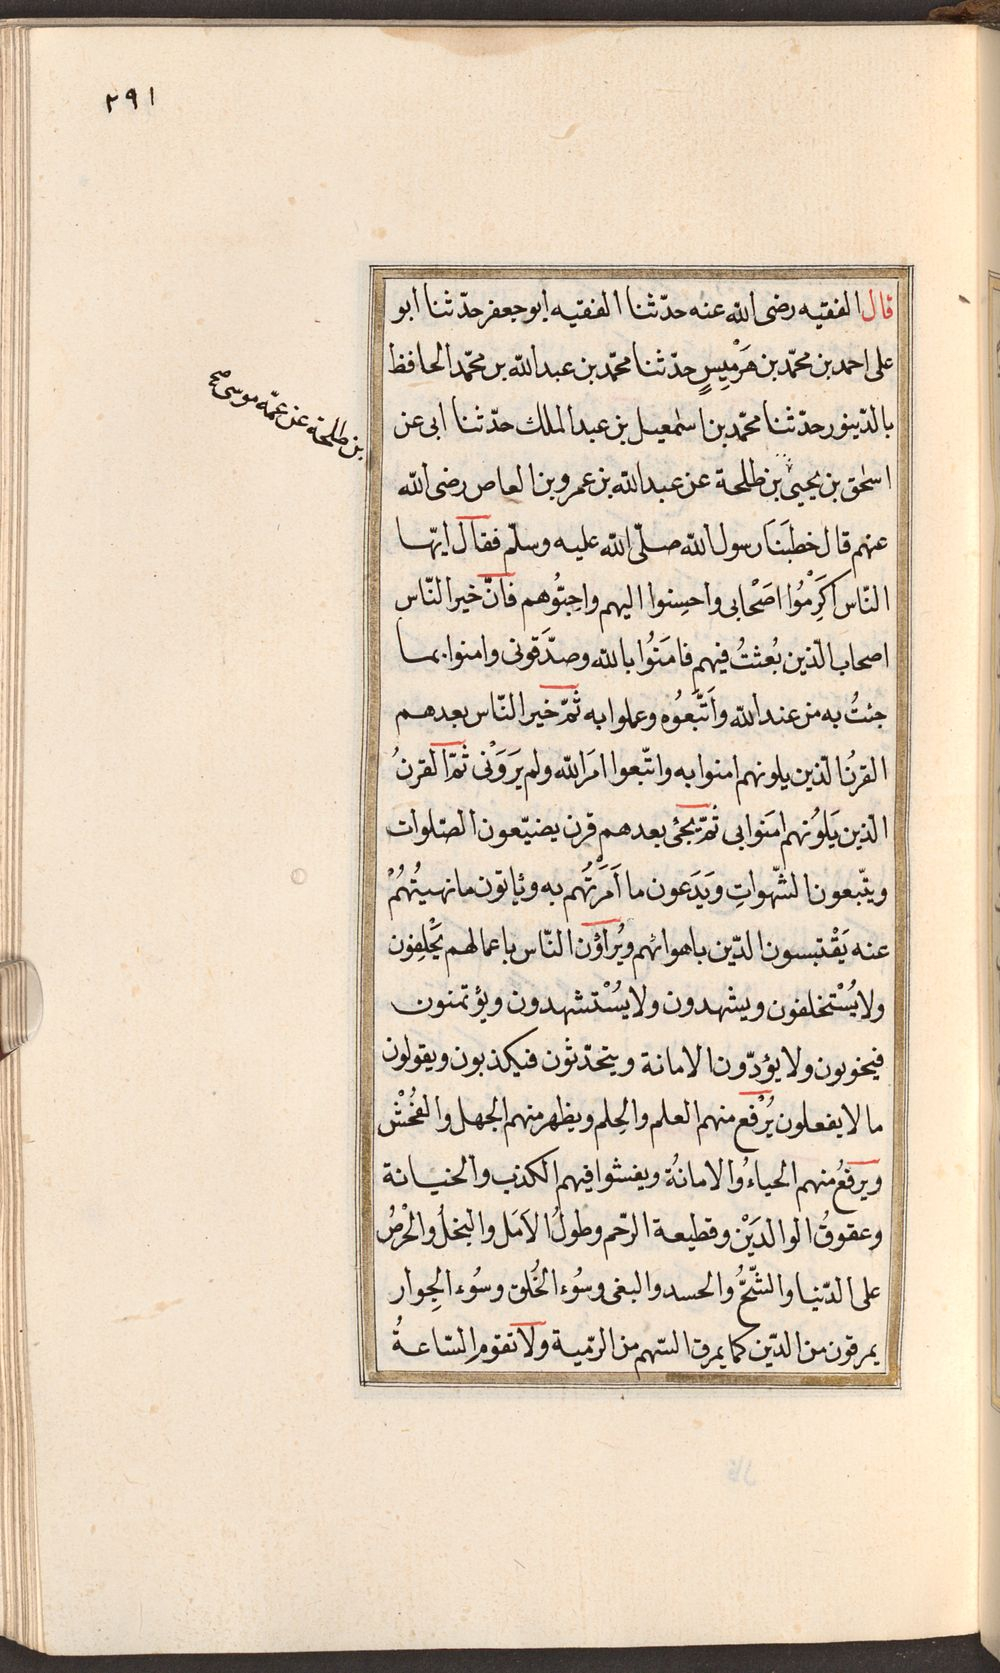 ٢٩١
قال الفقيه رضى الله عنه حدّثنا الفقيه ابو جعفر حدّثنا ابو
على احمد بن محمّد بن هَرْمِيسٍ حدّثنا محمّد بن عبد الله بن محمّد الحافظ
بالدّينور حدّثنا محمّد بن اسمٰعيل بن عبد الملك حدّثنا ابى عن
اسحٰق بن يحيىٰ بن طلحة عن عبد الله بن عمرو بن العاص رضى الله
بن طلحة عن عمّه موسى صح
عنهم قال خطبَنا رسول الله صلّى الله عليه وسلّم فقال ايّها
النّاس اكَرِمُوْا اصَحْابى واحسِنوا اليهم واحِبّوُهم فانّ خير النّاس
اصحاب الّذين بُعثتُ فيهم فامَنُوا بالله وصدَّقونى وامنوا بما
جئتُ به من عند الله واَتَّبعُوه وعملوا به ثمّ خير النّاس بعدهم
القرنُ الّذين يلونهم امنوا به واتّبعوا امَر الله ولم يَرَوْنى ثمّ القرنُ
الّذين يَلوُنهم امَنوا بى ثمّ يجئ بعدهم قرن يضيّعون الصّلوات
ويتّبعون الشّهواتِ ويَدَعون ما اَمَرْتُهم به ويأتون ما نهيتُهُمْ
عنه يَقْتبسون الدّين باهوائهم ويُراؤن النّاس باعمالهم يَحْلِفون
ولا يُسْتحلفون ويشهدون ولا يسُتشهدون ويؤتمنون
فيخونون ولا يؤدّون الامانة ويتحدّثون فيكذبون ويقولون
ما لا يفعلون يُرْفع منهم العلم والحِلم ويظهر منهم الجهل والفُحْش
ويرفعُ منهم الحياءُ والامانُة ويفشوا فيهم الكذب والخيانة
وعقوقُ الوالدَيْن وقطيعة الرّحم وطولُ الاَمَل والبخلُ والحْرصُ
على الدّنيا والشّحُّ والحسد والبغى وسُوء الخُلق وسُوء الجِوار
يمرقون من الدّين كما يمرق السّهم من الرّمية ولا تقوم السّاعةُ